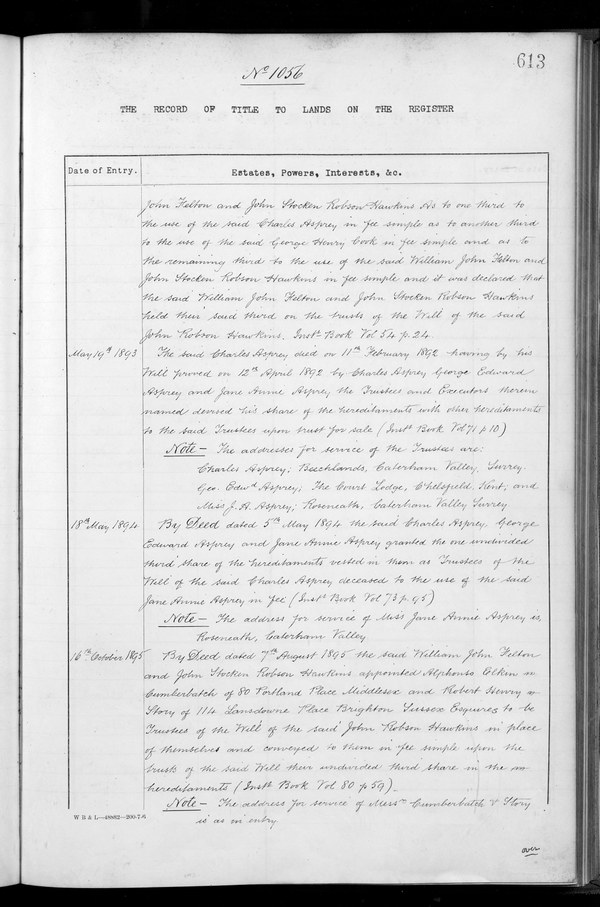 613
No 1056
THE RECORD OF TITLE TO LANDS ON THE REGISTER
Date of Entry.
Estates, Powers, Interests, &c.
John Felton and John Stocken Robson Hawkins As to one third to
the use of the said Charles Asprey in fee simple as to another third
to the use of the said George Henry Cook in fee simple and as to
the remaining third to the use of the said William John Felton and
John Stocken Robson Hawkins in fee simple and it was declared that
the said William John Felton and John Stocken Robson Hawkins
held their said third on the trusts of the Will of the said
John Robson Hawkins. Instt Book Vol 54 p. 24
May 19th 1893 The said Charles Asprey died on 11th February 1892 having by his
Will proved on 12th April 1892 by Charles Asprey George Edward
Asprey and Jane Annie Asprey the Trustees and Executors therein
named devised his share of the hereditaments with other hereditaments
to the said Trustees upon trust for sale (Instt Book Vol 71 p 10)
Note – The addresses for service of the Trustees are:
Charles Asprey; Beechlands, Caterham Valley, Surrey.
Geo. Edwd Asprey; The Court Lodge, Chelsfield, Kent; and
Miss J. A. Asprey; Roseneath, Caterham Valley Surrey
18th May 1894 By Deed dated 5th May 1894 the said Charles Asprey, George
Edward Asprey and Jane Annie Asprey granted the one undivided
third share of the hereditaments vested in them as Trustees of the
Will of the said Charles Asprey deceased to the use of the said
Jane Annie Asprey in fee (Instt Book Vol 73 p. 95)
Note – The address for service of Miss Jane Annie Asprey is,
Roseneath, Caterham Valley
16th October 1895 By Deed dated 7th August 1895 the said William John Felton
and John Stocken Robson Hawkins appointed Alphonso Elkin
Cumberbatch of 80 Portland Place Middlesex and Robert Henry
Story of 114 Lansdowne Place Brighton Sussex Esquires to be
Trustees of the Will of the said John Robson Hawkins in place
of themselves and conveyed to them in fee simple upon the
trusts of the said Will their undivided third share in the
hereditaments (Instt Book Vol 80 p 59)
Note – The address for service of Messrs Cumberbatch & Story
is as in entry
W B & L—48862—200-7/6
over